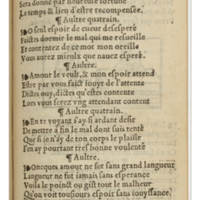 Sera donne par bonne fortune
Le temps & lieu d'estre recompensee.
¶ Aultre quatrain.
O seul espoir de cueur desesperé
Faictz dormir le mal qui me resueille
Et contentez de ce mot mon oreille
Vous aurez mieulx que nauez esperé.
¶ Aultre.
Amour le veult, & mon espoir attend
Estre par vous faict iouyr de l'attente
Dictes ouy, dictes qu'estes contente
Lors vous ferez vng attendant content
¶ Aultre quatrain.
En te voyant i'ay si ardant desir
De mettre a fin le mal dont suis tenté
Que si n'ay de ton corps le plaisir
I'en ay pourtant tresbonne voulenté
¶ Aultre.
Oncques amour ne fut sans grand langueur
Langueur ne fut iamais sans esperance
Voila le poinct ou gist tout le malheur
Qu'on voit tousiours espoir sans iouyssance.